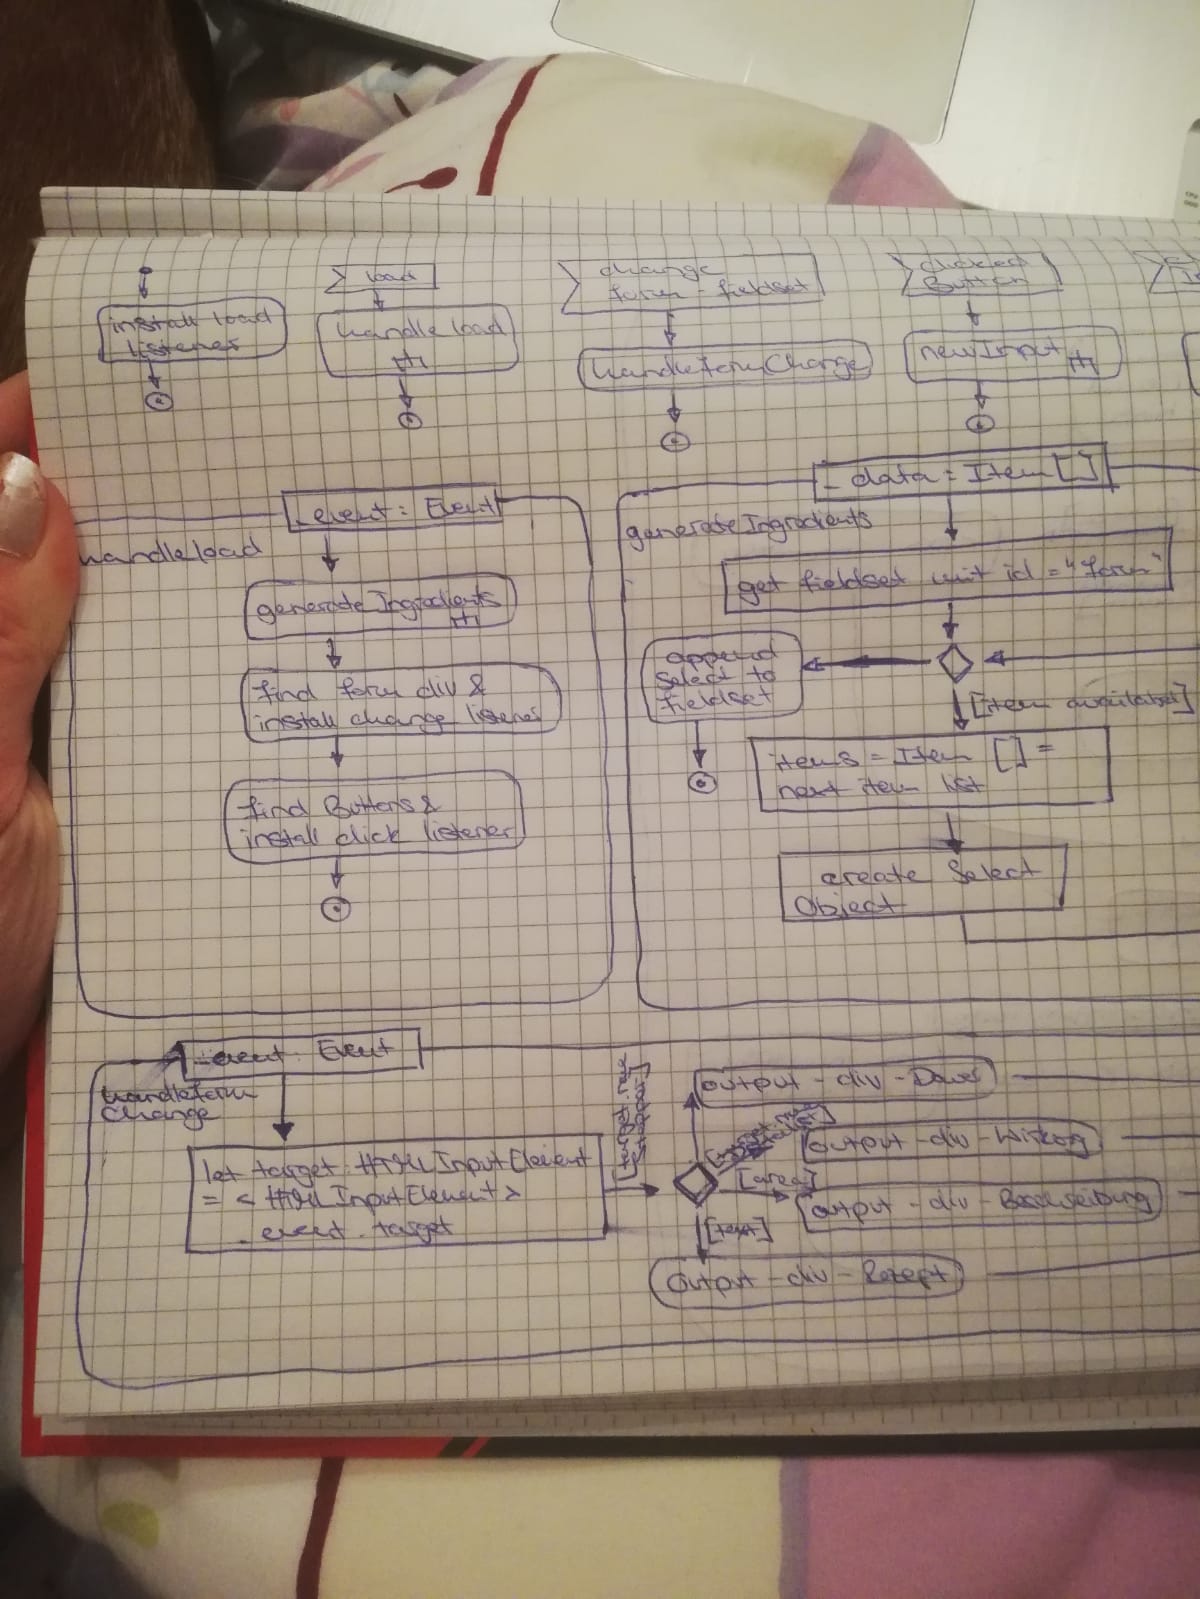 install load
listener
load
handle load
change
form - fieldset
handleFormChange
clicked
Button
newInput
_event: Event
handleload
generateIngredients
find form div &
install change listener
find Buttons &
install click listener
_data = Item []
generateIngredients
get fieldset wit id = "form"
append
select to
fieldset
[item available]
items = Item [] =
next item list
create Select
Object
_event: Event
handleForm
Change
let target: HTML InputElement
= < HTML InputElement>
_event.target
output - div - Dauer
output - div - Wirkung
[area]
output - div - Beschreibung
[text]
output - div - Rezept